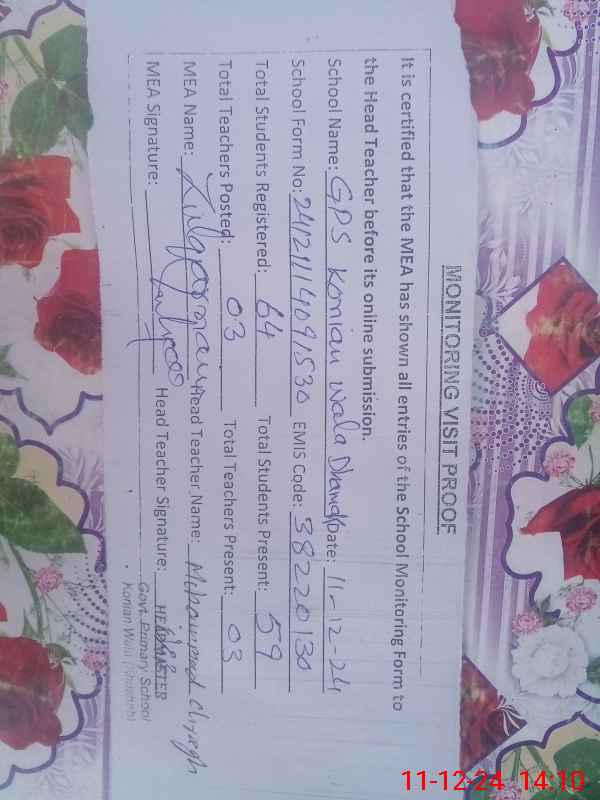 MONITORING VISIT PROOF
It is certified that the MEA has shown all entries of the School Monitoring Form to
the Head Teacher before its online submission.
School Name: GPS Konian Wala Dhamdh Date: 11-12-24
School Form No: EMIS Code: 38220130
Total Students Registered: 64 Total Students Present: 59
Total Teachers Posted: 03 Total Teachers Present: 03
MEA Name: Head Teacher Name: Muhammad
MEA Signature: Head Teacher Signature:
HEADMASTER
Govt. Primary School
Konian Wala
11-12-24 14:10